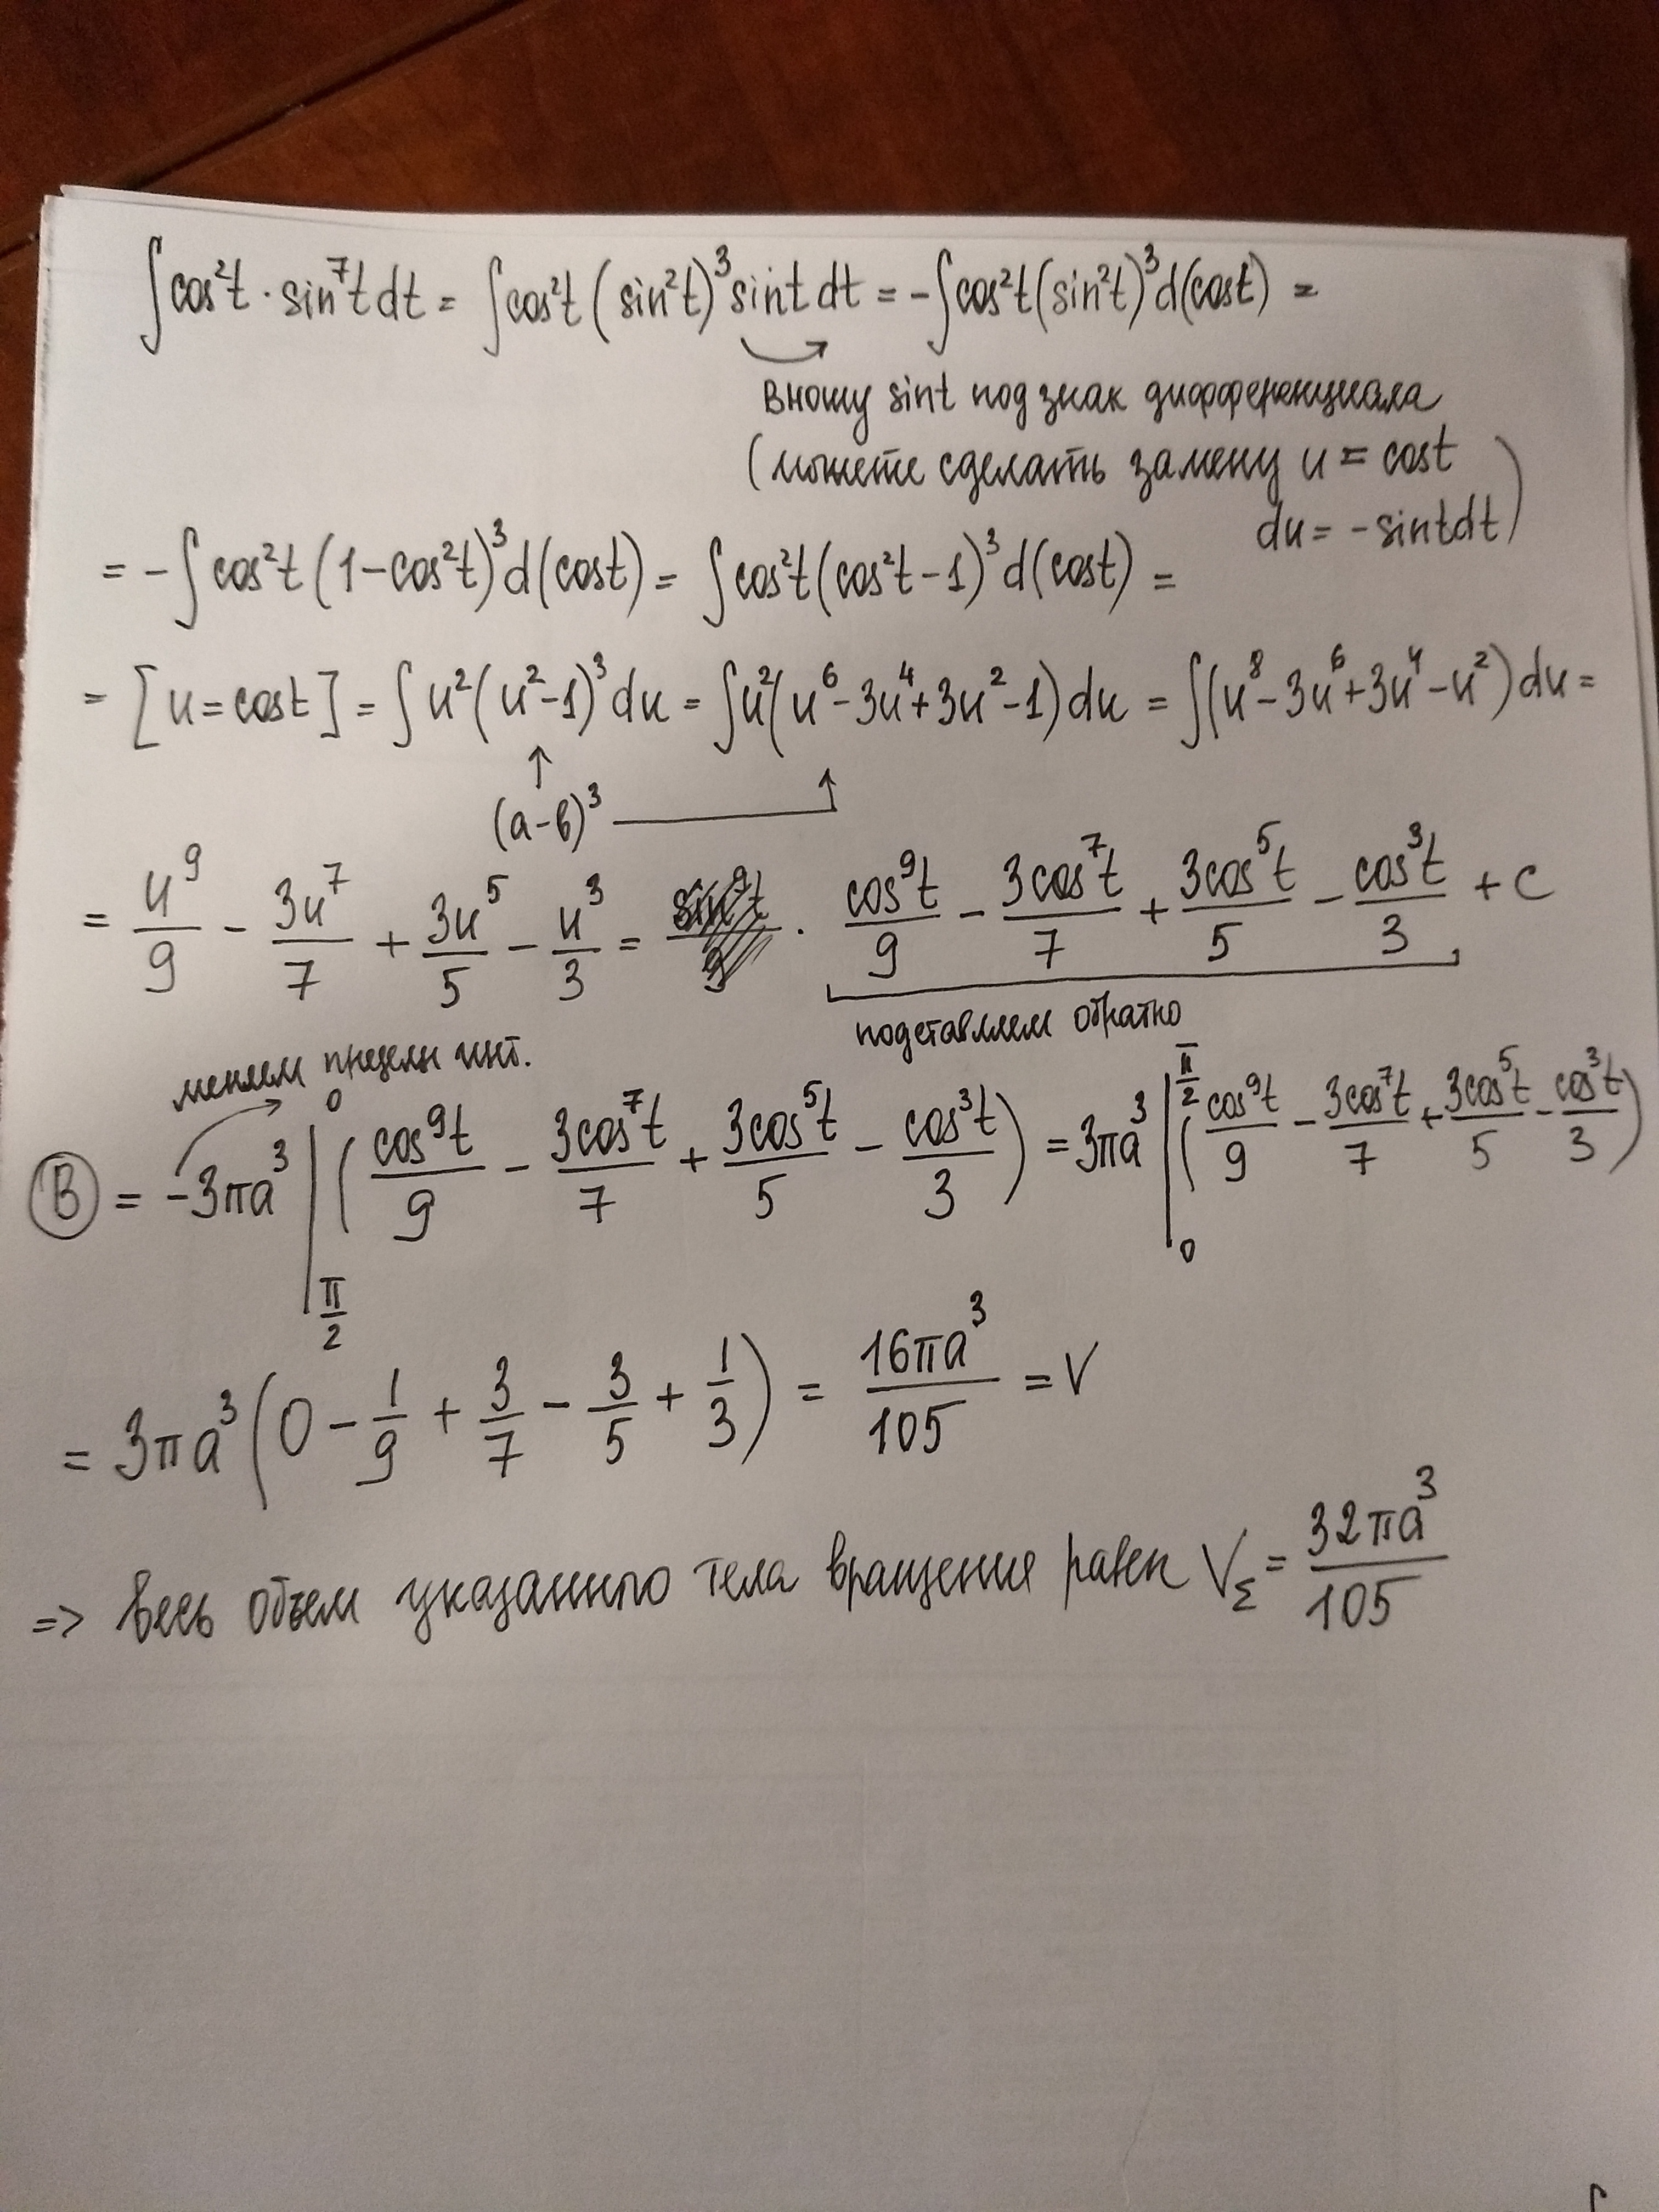 ∫cos²t · sin⁷t dt = ∫cos²t (sin²t)³ sint dt = -∫cos²t (sin²t)³ d(cost) =
вношу sint под знак дифференциала
(можете сделать замену u = cost
du = -sintdt)
= -∫cos²t (1-cos²t)³ d(cost) = ∫cos²t (cos²t-1)³ d(cost) =
= [u=cost] = ∫u²(u²-1)³ du = ∫u²(u⁶-3u⁴+3u²-1) du = ∫(u⁸-3u⁶+3u⁴-u²) du =
(a-b)³
= u⁹/9 - 3u⁷/7 + 3u⁵/5 - u³/3 = cos⁹t/9 - 3cos⁷t/7 + 3cos⁵t/5 - cos³t/3 + C
подставляем обратно
меняем пределы инт.
B = -3πa³ |_{π/2}^{0} (cos⁹t/9 - 3cos⁷t/7 + 3cos⁵t/5 - cos³t/3) = 3πa³ |_{0}^{π/2} (cos⁹t/9 - 3cos⁷t/7 + 3cos⁵t/5 - cos³t/3)
= 3πa³ (0 - 1/9 + 3/7 - 3/5 + 1/3) = 16πa³/105 = V
=> весь объем указанного тела вращения равен V_Σ = 32πa³/105